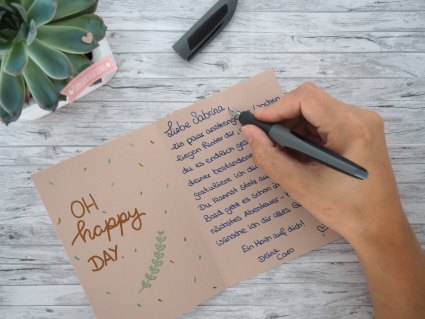 OH
happy
DAY.
Liebe Sabrina,
ein paar anstrengende Wochen
liegen hinter dir,
du es endlich
deiner bestandene
gratuliere ich di
Du kannst stolz auf
Bald geht es schon
nächstes Abenteuer
wünsche ich dir alles G
Ein Hoch auf dich!
Deine
Caro